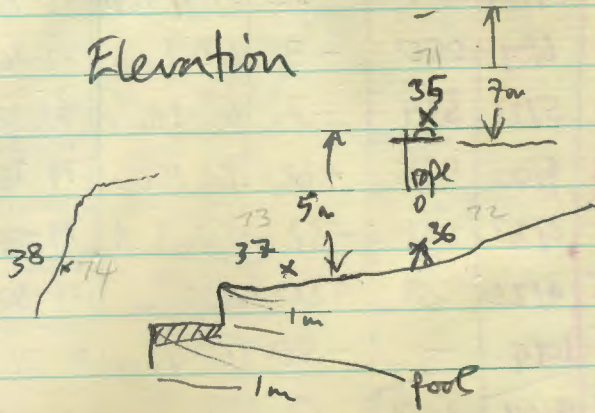 Elevation
71
35
7m
rope
5m
73
72
37
36
38
74
1m
1m
pool